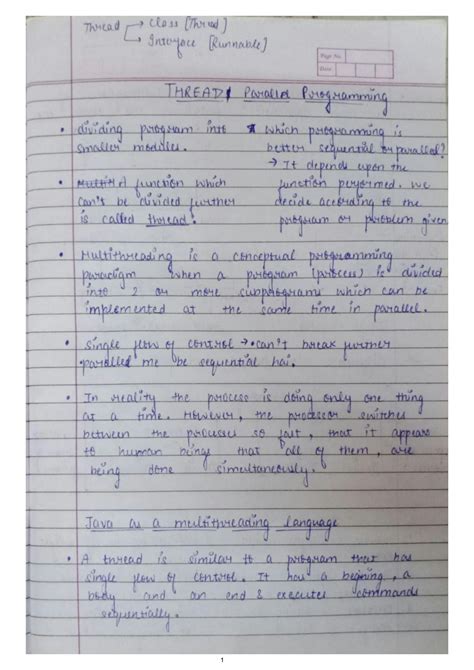 Thread → Class [Thread]
→ Interface [Runnable]
Page No.
Date
THREAD / Parallel Programming
• dividing program into
smaller modules.
• A function which
can't be divided further
is called thread.
* Which programming is
better sequential or parallel?
→ It depends upon the
function performed. We
decide according to the
program or problem given
• Multithreading is a conceptual programming
paradigm when a program (process) is divided
into 2 or more subprograms which can be
implemented at the same time in parallel.
• Single flow of control → • can't break further
• parallel me be sequential hai.
• In reality the process is doing only one thing
at a time. However, the processor switches
between the processes so fast, that it appears
to human beings that all of them, are
being done simultaneously.
Java as a multithreading language
• A thread is similar to a program that has
single flow of control. It has a begining, a
body and an end & executes commands
sequentially.
1